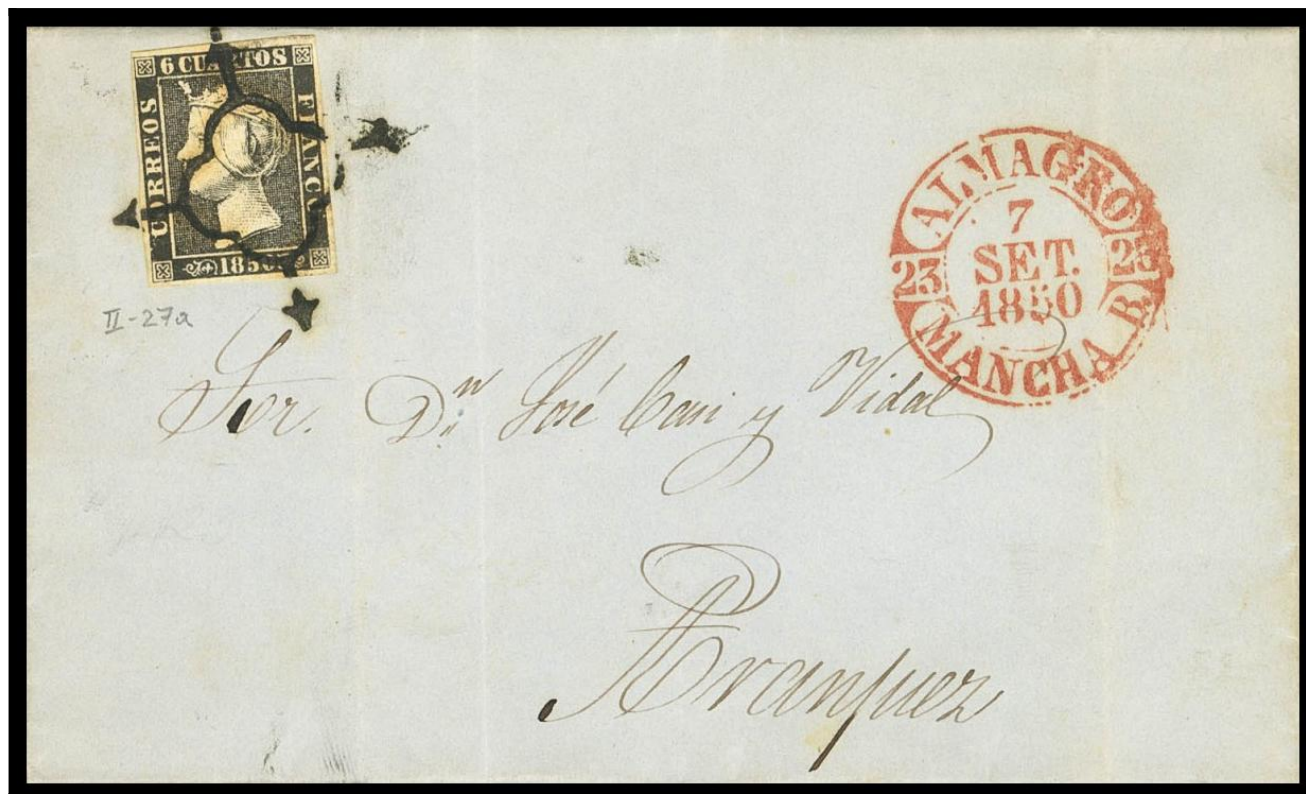 6 CUARTOS
CORREOS
FRANCO
1850
II-27a
ALMAGRO
7
SET.
1850
23 23
MANCHA B.
Sor. Dn José Cani y Vidal
Aranjuez